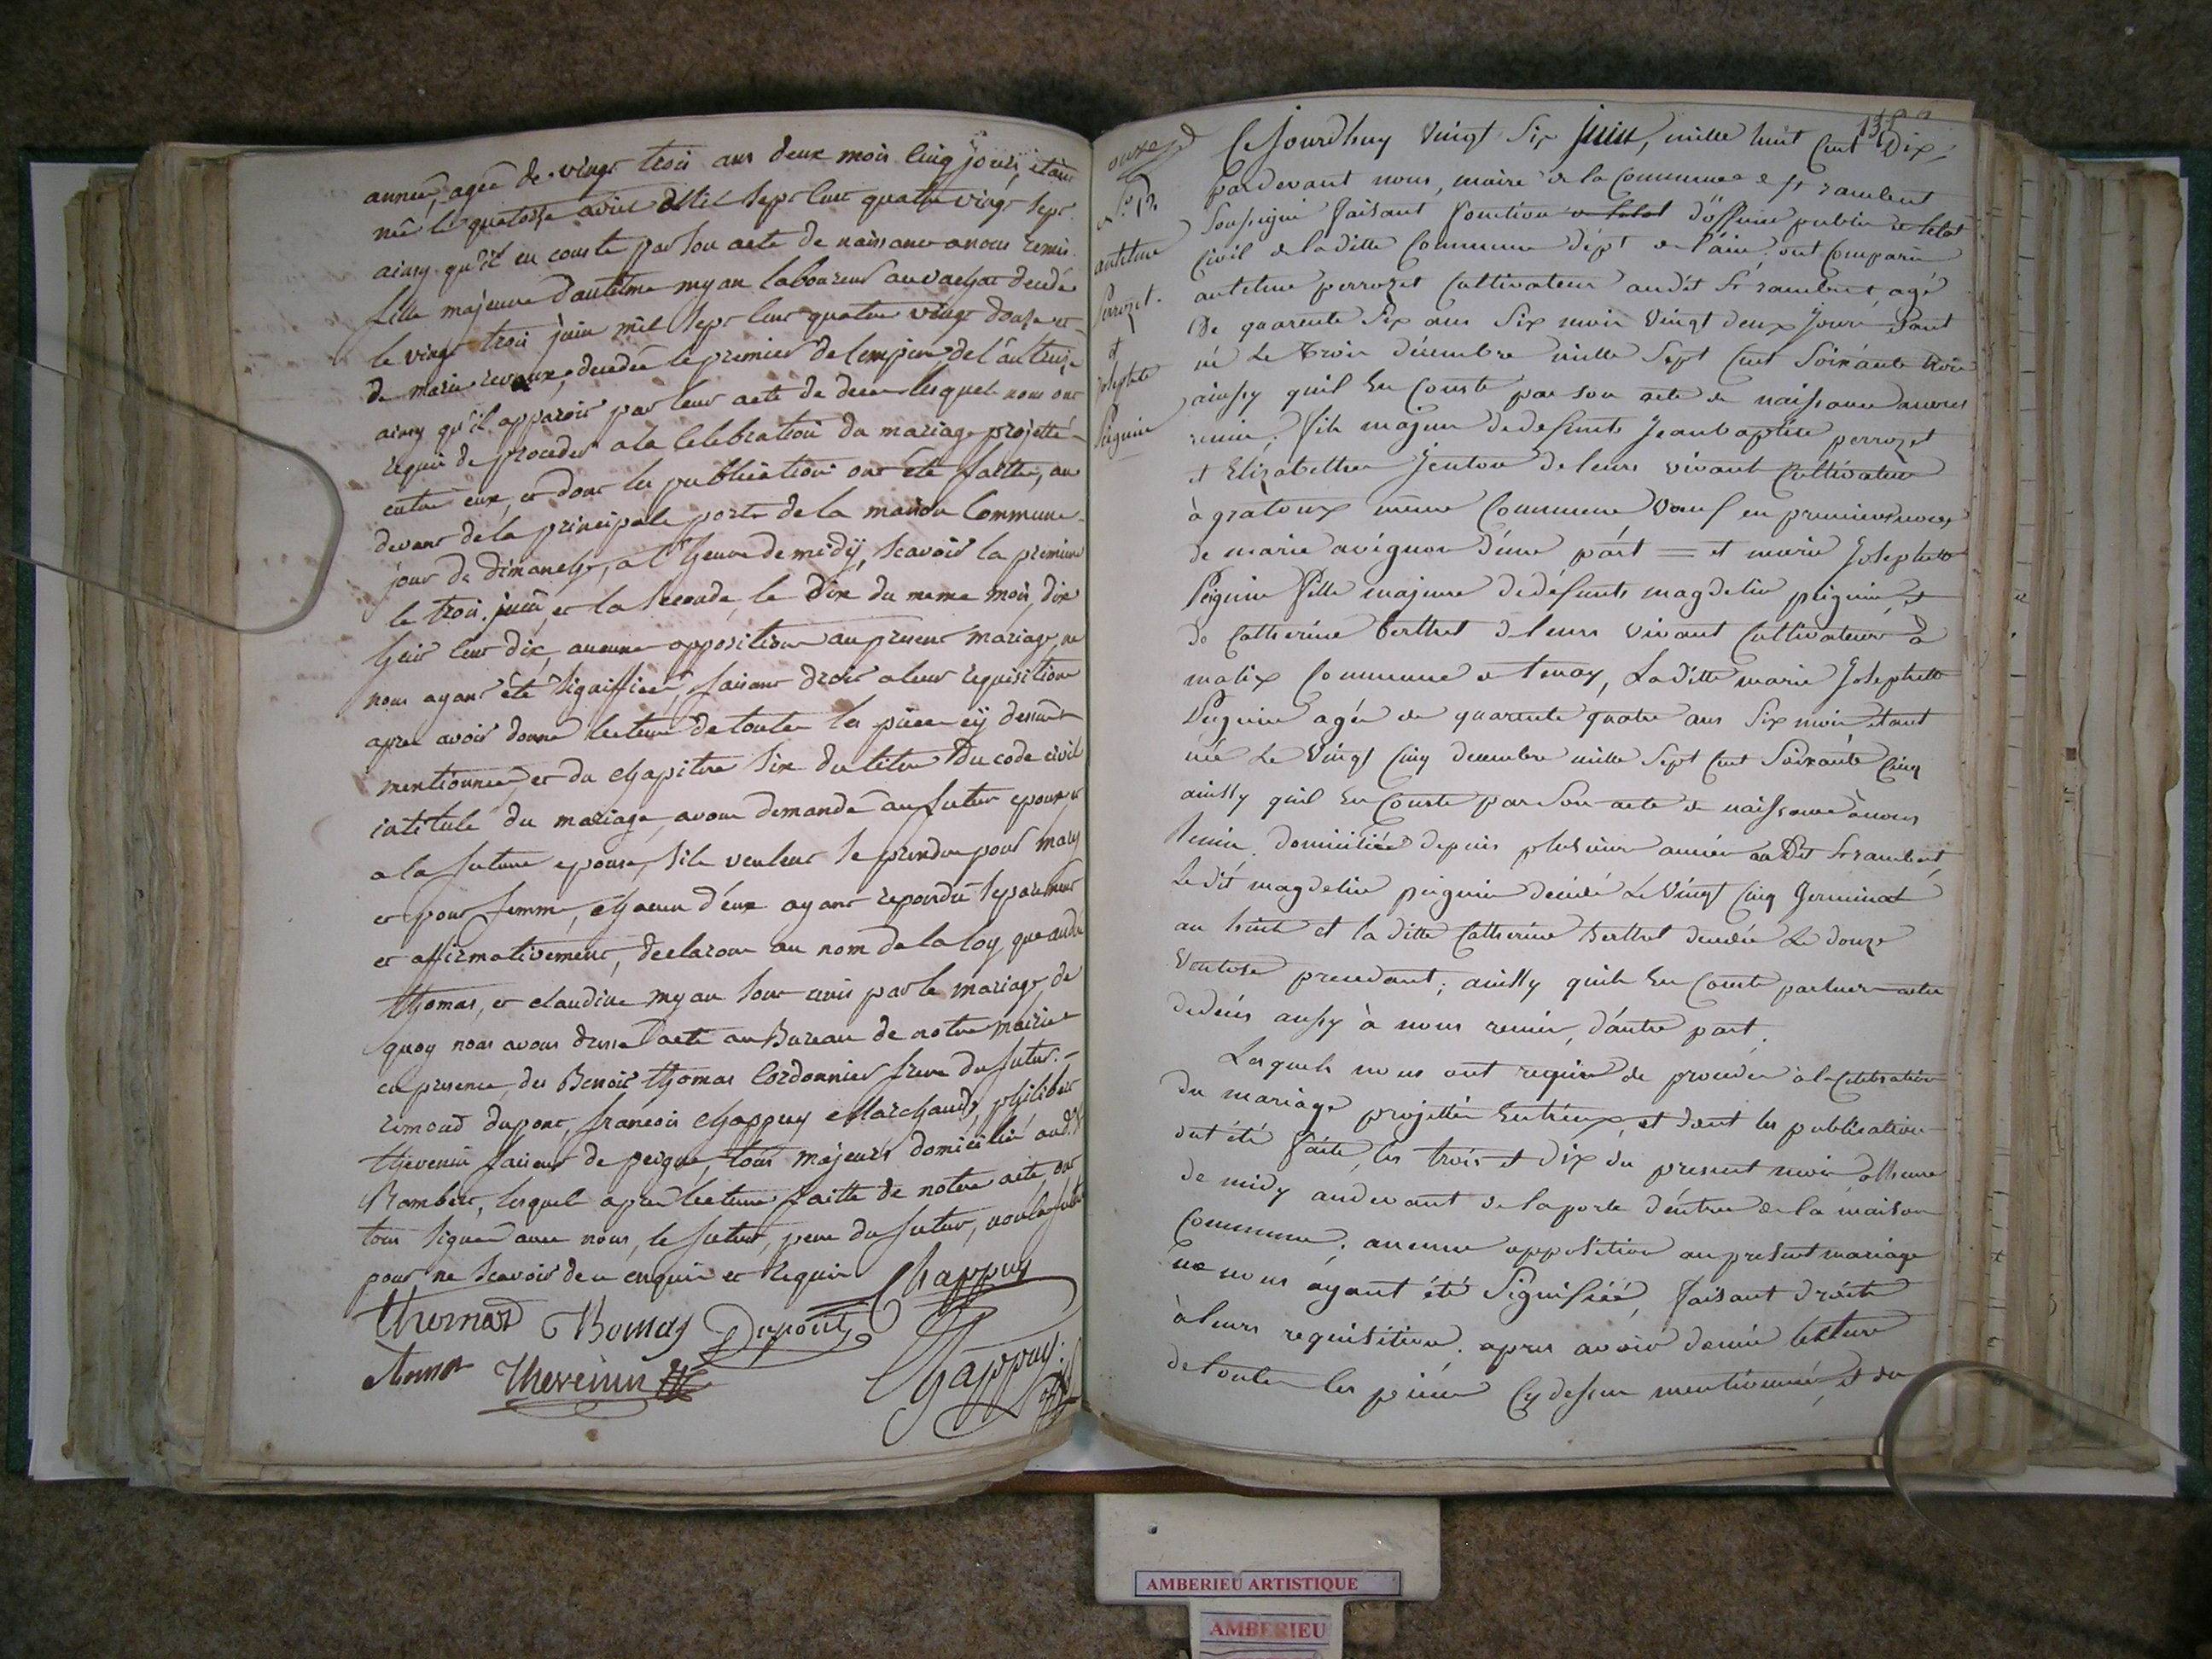 année, agée de vingt trois ans deux mois cinq jours, étant
née le quatorze avril Mil sept cent quatre vingt sept
ainsy qu'il en conste par son acte de naissance a nous remis
fille majeure d'antelme myan laboureur au vachat decedé
le vingt trois juin mil sept cent quatre vingt douze et
de marie decedée le premier de l'an treize
ainsy qu'il apparoit par leur acte de deces lesquels nous ont
requis de proceder a la Celebration du mariage projetté
entre eux, et dont les publications ont été faittes, au
devant de la principale porte de la maison Commune
jour de dimanche, a l'heure de midÿ, scavoir la premiere
le trois juin, et la seconde le dix du meme mois, dix
huit cent dix, aucune opposition au present mariage, ne
nous ayant été signiffiée, faisant droit a leur requisition
apres avoir donné lecture de toutes les pieces cÿ dessus
mentionnées, et du chapitre six du titre du code civil
intitulé du mariage, avons demandé au futur epoux et
a la future epouse, s'ils veulent se prendre pour mary
et pour femme, chacun d'eux ayant repondu separement
et affirmativement, declarons au nom de la loy, que andré
thomas, et claudine myan sont unis par le mariage, de
quoy nous avons dressé acte au Bureau de notre mairie
en presence, des Benoit thomas Cordonnier frere du futur
dupont, francois chappuy Marchands, philibert
thevenin faiseur de peigne, tous majeurs domiciliés aud. St
Rambert, lesquels apres lecture faitte de notre acte, ont
tous signé avec nous, le futur, pere du futur, non la future
pour ne scavoir de ce enquis et requis Chappuy
thomas Thomas Dupont
thomas Thevenin Chappuy
138
onze
antelme
Perrozet
et
josephte
Peiguin
Cejourdhuy vingt six juin, mille huit cent Dix,
pardevant nous, maire de la Commune de st rambert
soussigné faisant fonction d'officier public de letat
Civil de la ditte Commune dépt de l'ain, ont Comparu
antelme perrozet Cultivateur audit St rambert, agé
De quarente six ans six mois vingt deux jours etant
né Le trois décembre mille sept Cent soixante trois
ainsy quil En Conste par son acte de naissance a nous
remis, fils majeur de deffunts Jean baptiste perrozet
et Elizabeth Jenton de leurs vivant Cultivateur
à gratoux même Commune veuf en premieres noces
de marie avignon d'une part = et marie Josephte
Peiguin fille majeure de défunts magdelin peiguin et
de Catherine berthet de leurs vivant Cultivateurs à
matix Commune de tenay, Laditte marie Josephte
Peiguin agée de quarente quatre ans six mois etant
née Le vingt Cinq decembre mille sept Cent soixante Cinq
ainsy quil En Conste par son acte de naissance à nous
Remis, domiciliée depuis plusieurs années au Dit St rambert,
Le dit magdelin peiguin decedé Le vingt Cinq Germinal
an huit et la ditte Catherine Berthet decedée Le douze
Ventose precedant, ainsy quils En Conste par leurs actes
de deces aussy à nous remis, d'autre part.
Lesquels nous ont requis de proceder à la Celebration
du mariage projettés Entreux, et dont les publications
ont été faite, les trois et dix du present mois, à lheure
de midy audevant de la porte d'entrée de la maison
Commune, aucune opposition au present mariage
ne nous ayant été signifiée, faisant droite
à leurs requisition. apres avoir donné lecture
de toutes les piéces Cy dessus mentionnée, et du
AMBERIEU ARTISTIQUE
AMBERIEU